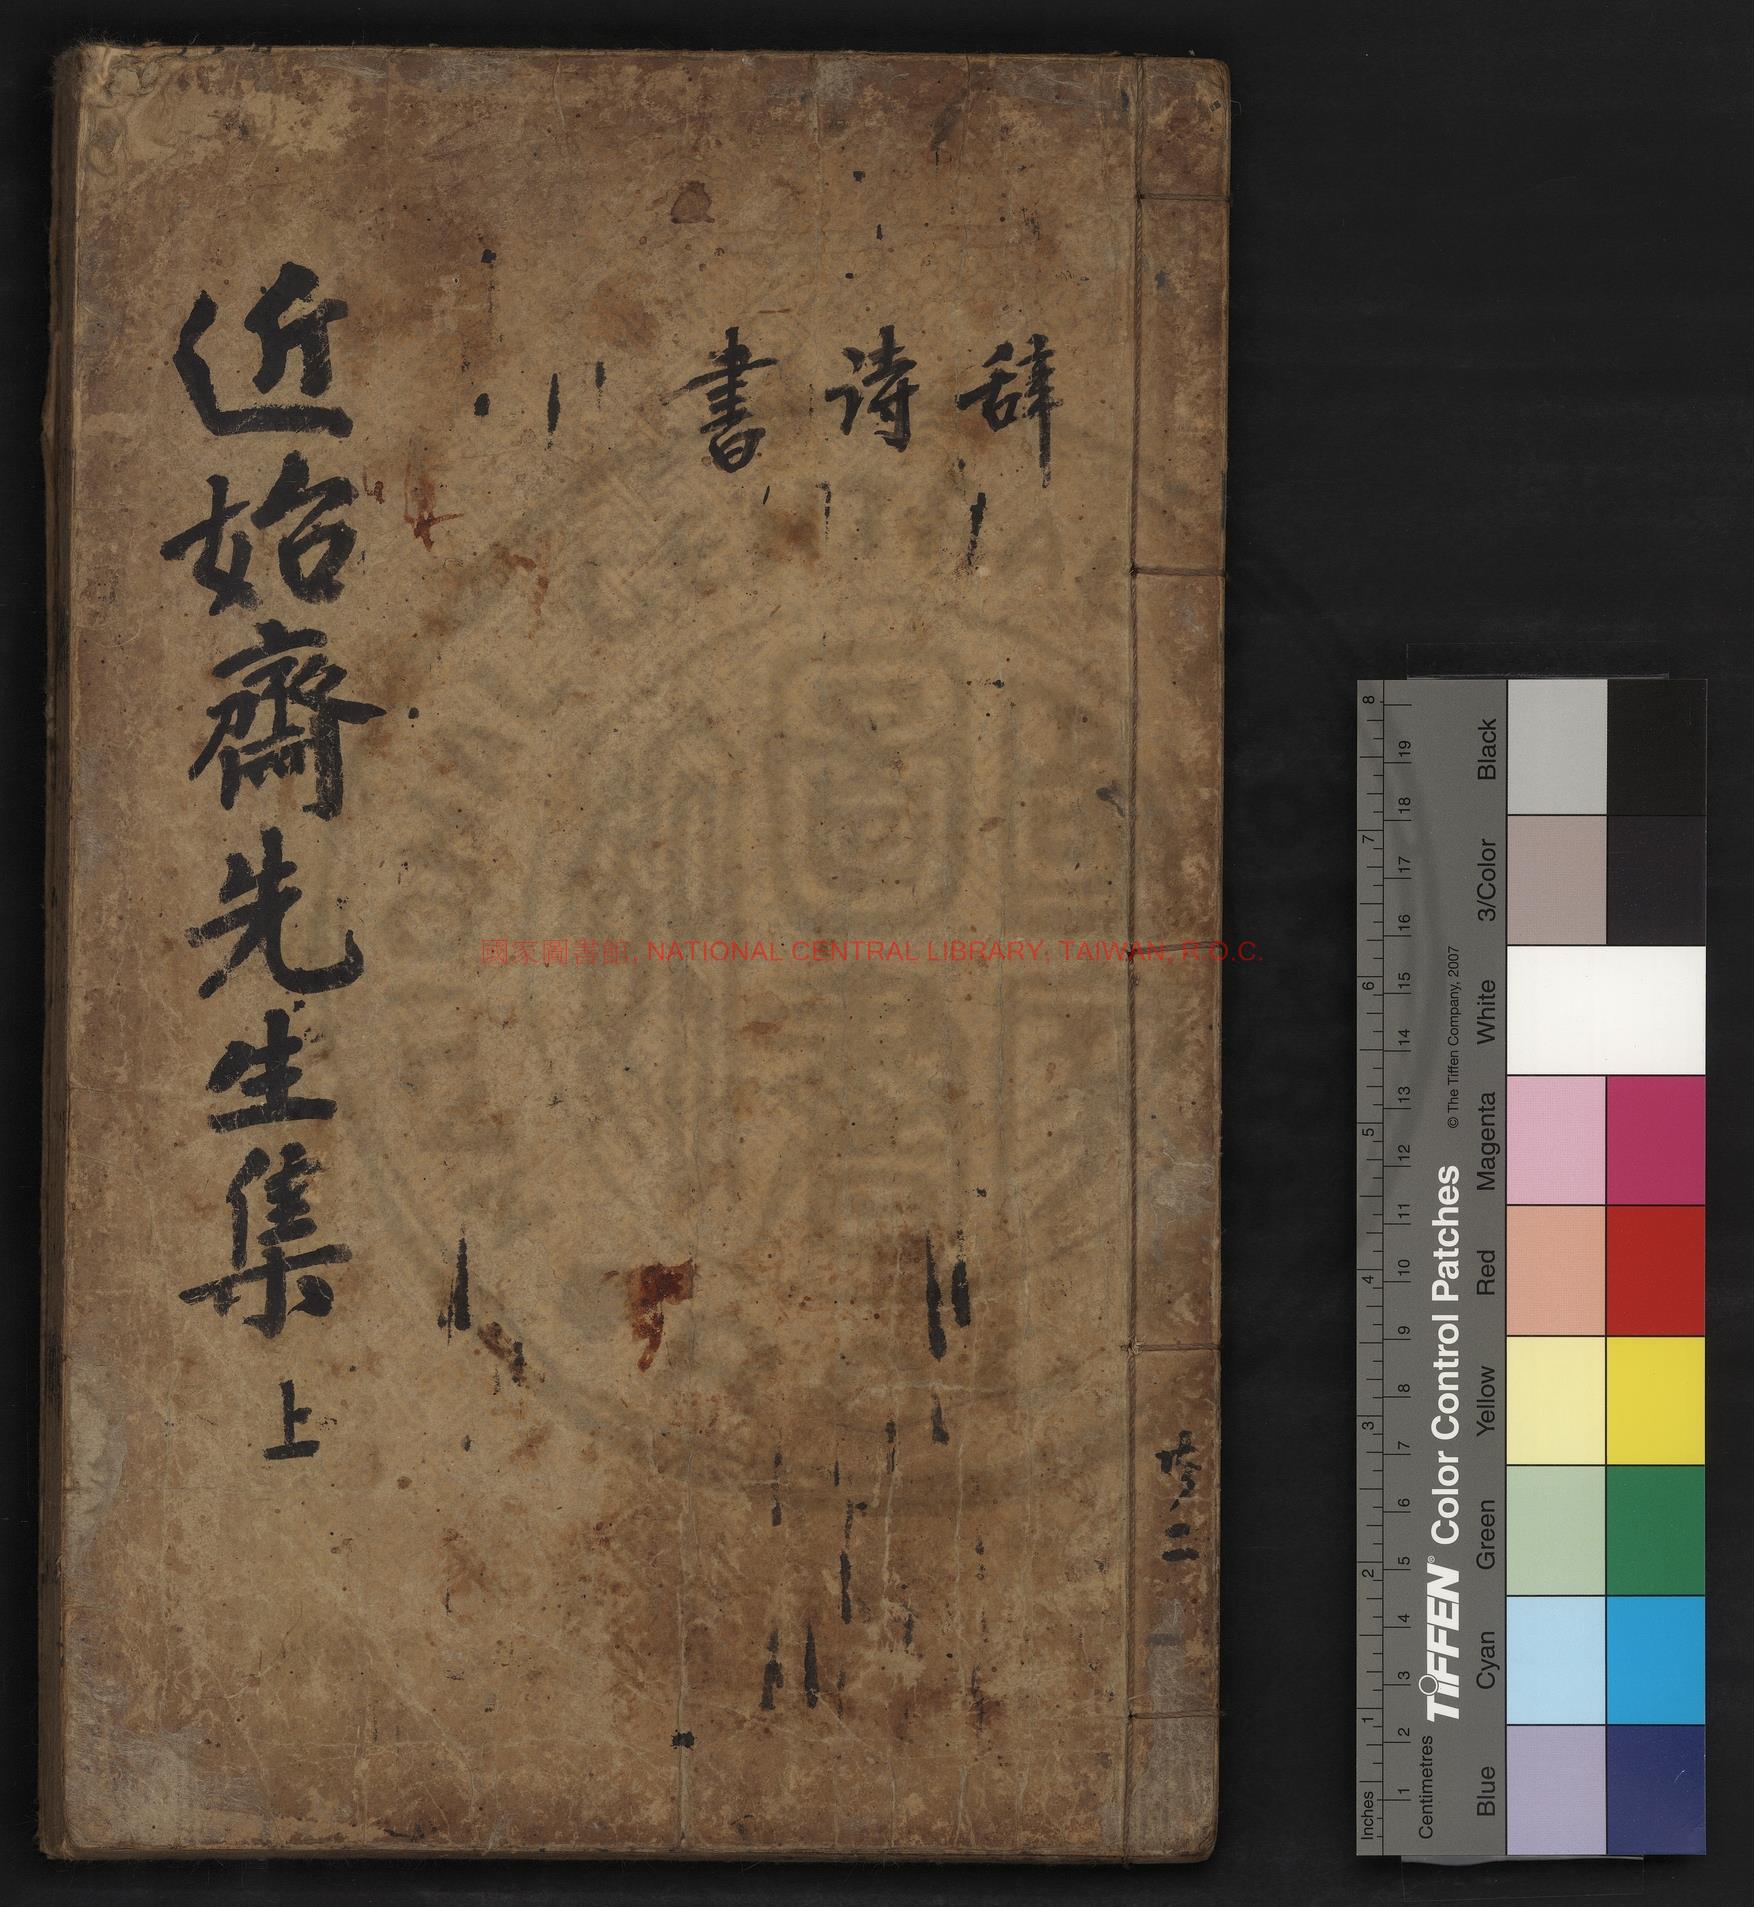 辞
詩
書
近始齋先生集 上
共二
國家圖書館, NATIONAL CENTRAL LIBRARY, TAIWAN, R.O.C.
Inches
1 2 3 4 5 6 7 8
Centimetres
1 2 3 4 5 6 7 8 9 10 11 12 13 14 15 16 17 18 19
TIFFEN® Color Control Patches
© The Tiffen Company, 2007
Blue Cyan Green Yellow Red Magenta White 3/Color Black